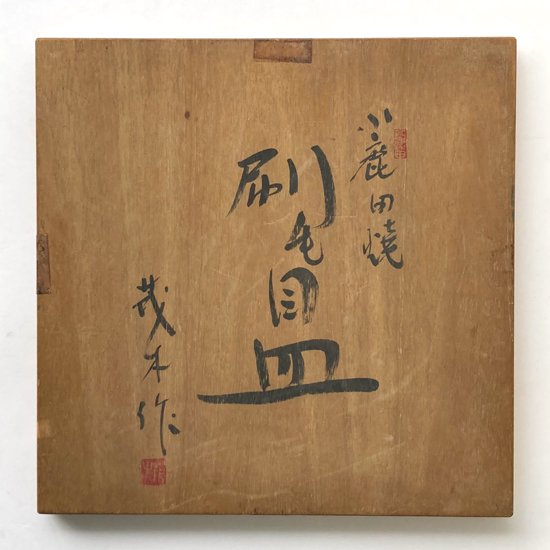 小鹿田焼
刷毛目皿
茂木作